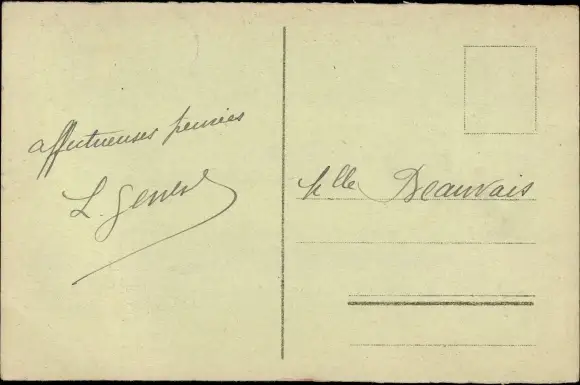 affectueuses pensées
L. Genese
Mlle Beauvais